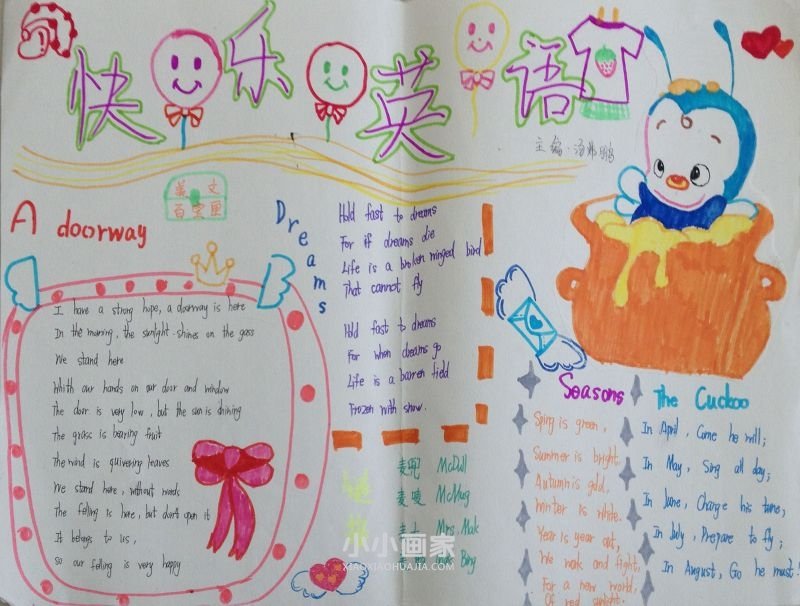 快乐英语
主编:汤弗鹏
英文
百宝匣
A doorway
I have a strong hope, a doorway is here
In the morning, the sunlight shines on the gass
We stand here
Whith our hands on our door and window
The door is very low, but the sun is shining
The grass is bearing fruit
The wind is quivering leaves
We stand here, without words
The felling is here, but don't open it
It belogs to us,
so our felling is very happy
Dreams
Hold fast to dreams
For if dreams die
Life is a broken winged bird
That cannot fly
Hold fast to dreams
For when dreams go
Life is a barren field
Frozen with snow.
麦兜 McDull
麦唛 McMug
麦太 Mrs Mak
Bing
Seasons
Spring is green,
Summer is bright,
Autumn is gold,
Winter is white.
Year is year out,
We work and fight,
For a new world,
Of red sunlight.
The Cuckoo
In April, Come he will;
In May, Sing all day;
In June, Change his tune;
In July, Prepare to fly;
In August, Go he must!
小小画家
XIAOXIAOHUAJIA.COM